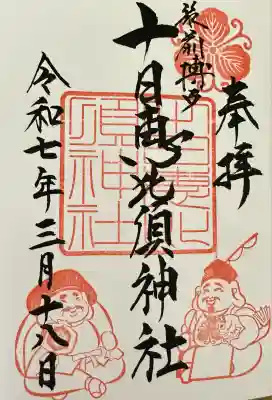 奉拝
筑前博多
十日恵比須神社
十日恵比須神社
令和七年三月十八日